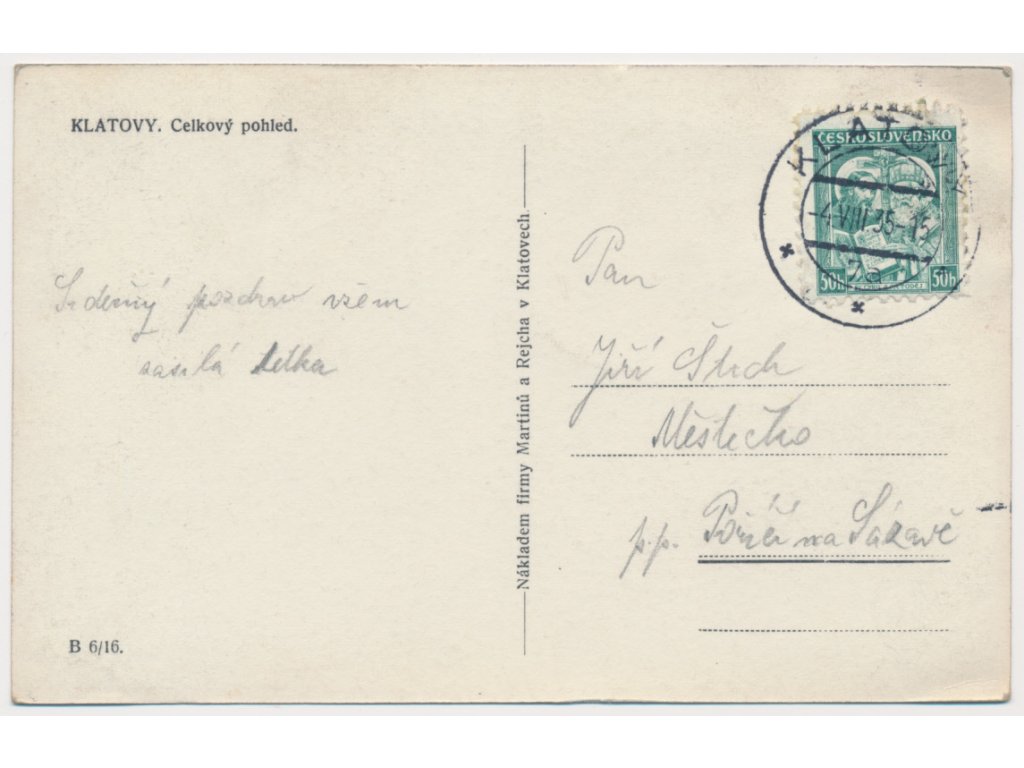 KLATOVY. Celkový pohled.
Srdečný pozdrav všem
zasílá tetka
B 6/16.
Nákladem firmy Martinů a Rejcha v Klatovech.
ČESKOSLOVENSKO
50h 50h
KLATOVY
-4.VIII.35-15
7a
Pan
Jiří
Městečko
p.p. Poříčí na Sázavě